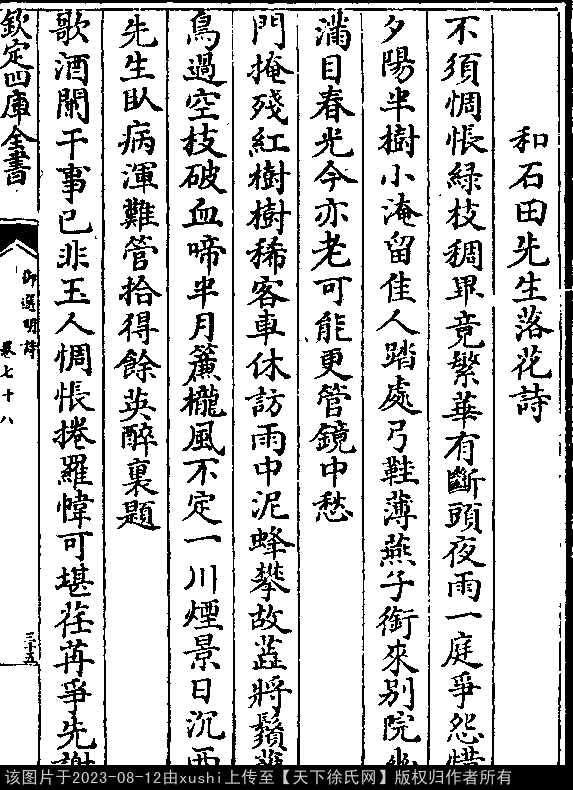 和石田先生落花詩
不須惆悵綠枝稠畢竟繁華有斷頭夜雨一庭爭怨惜
夕陽半樹小淹留佳人踏處弓鞋薄燕子銜來別院幽
滿目春光今亦老可能更管鏡中愁
門掩殘紅樹樹稀客車休訪雨中泥蜂攀故蕋將鬚護
鳥過空枝破血啼半月簾櫳風不定一川煙景日沉西
先生臥病渾難管拾得餘英醉裏題
歌酒闌干事已非玉人惆悵捲羅幃可堪荏苒爭先謝
欽定四庫全書
御選明詩
卷七十八
三十五
该图片于2023-08-12由xushi上传至【天下徐氏网】版权归作者所有